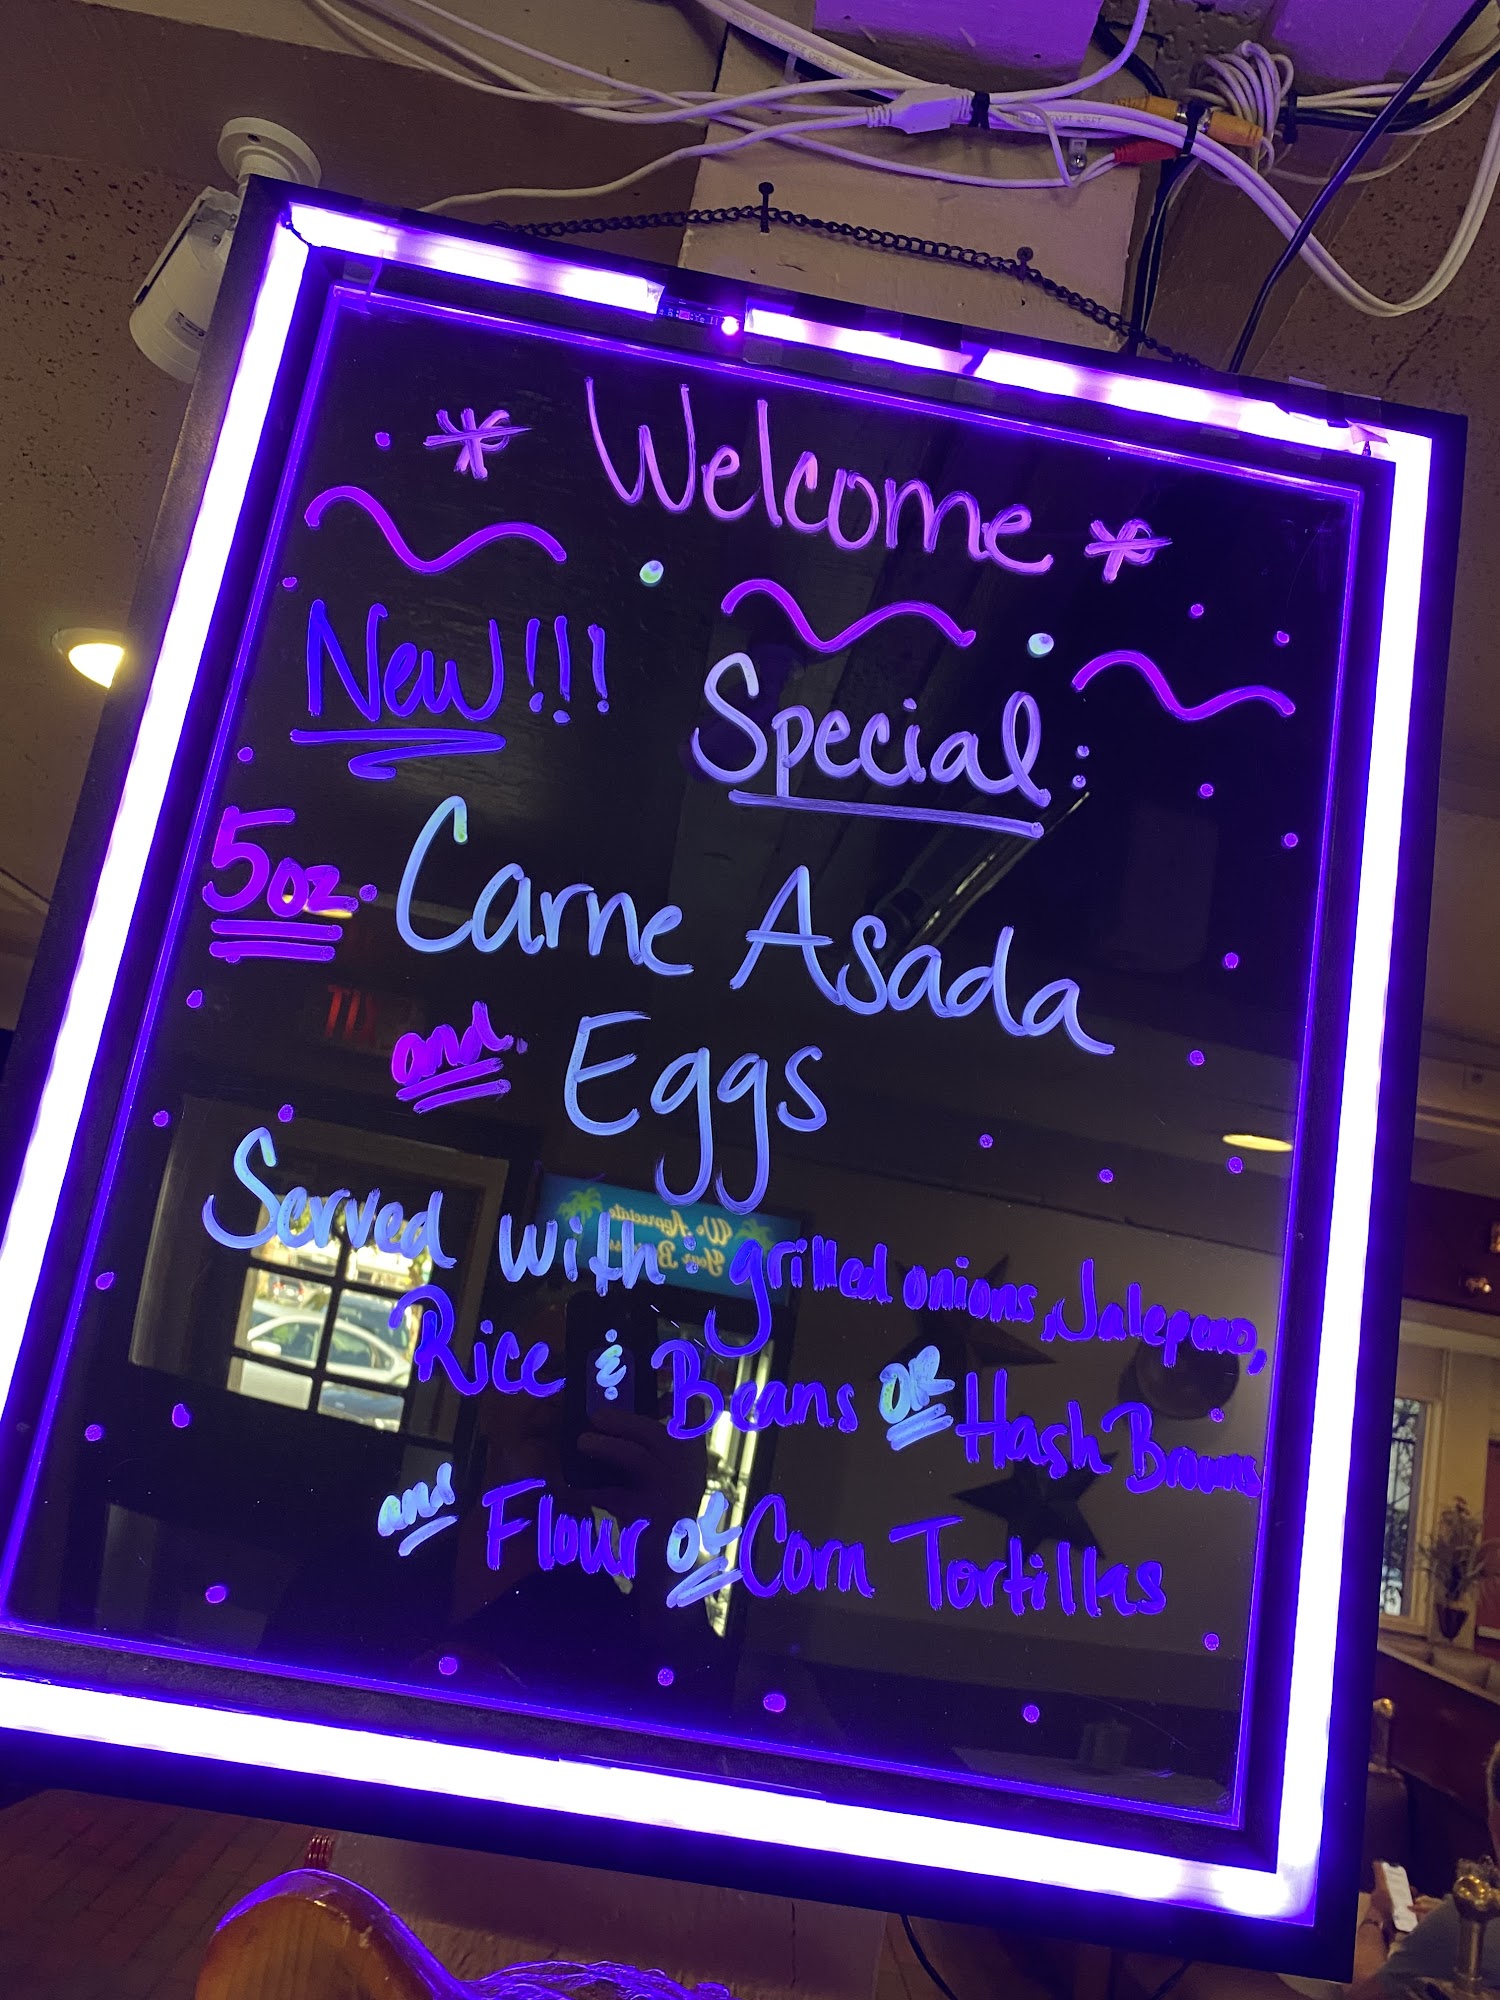 * Welcome *
New!!! Special:
5oz. Carne Asada
and Eggs
Served with: grilled onions, Jalepeno,
Rice & Beans or Hash Browns
and Flour or Corn Tortillas
EXIT
We Appreciate
Your